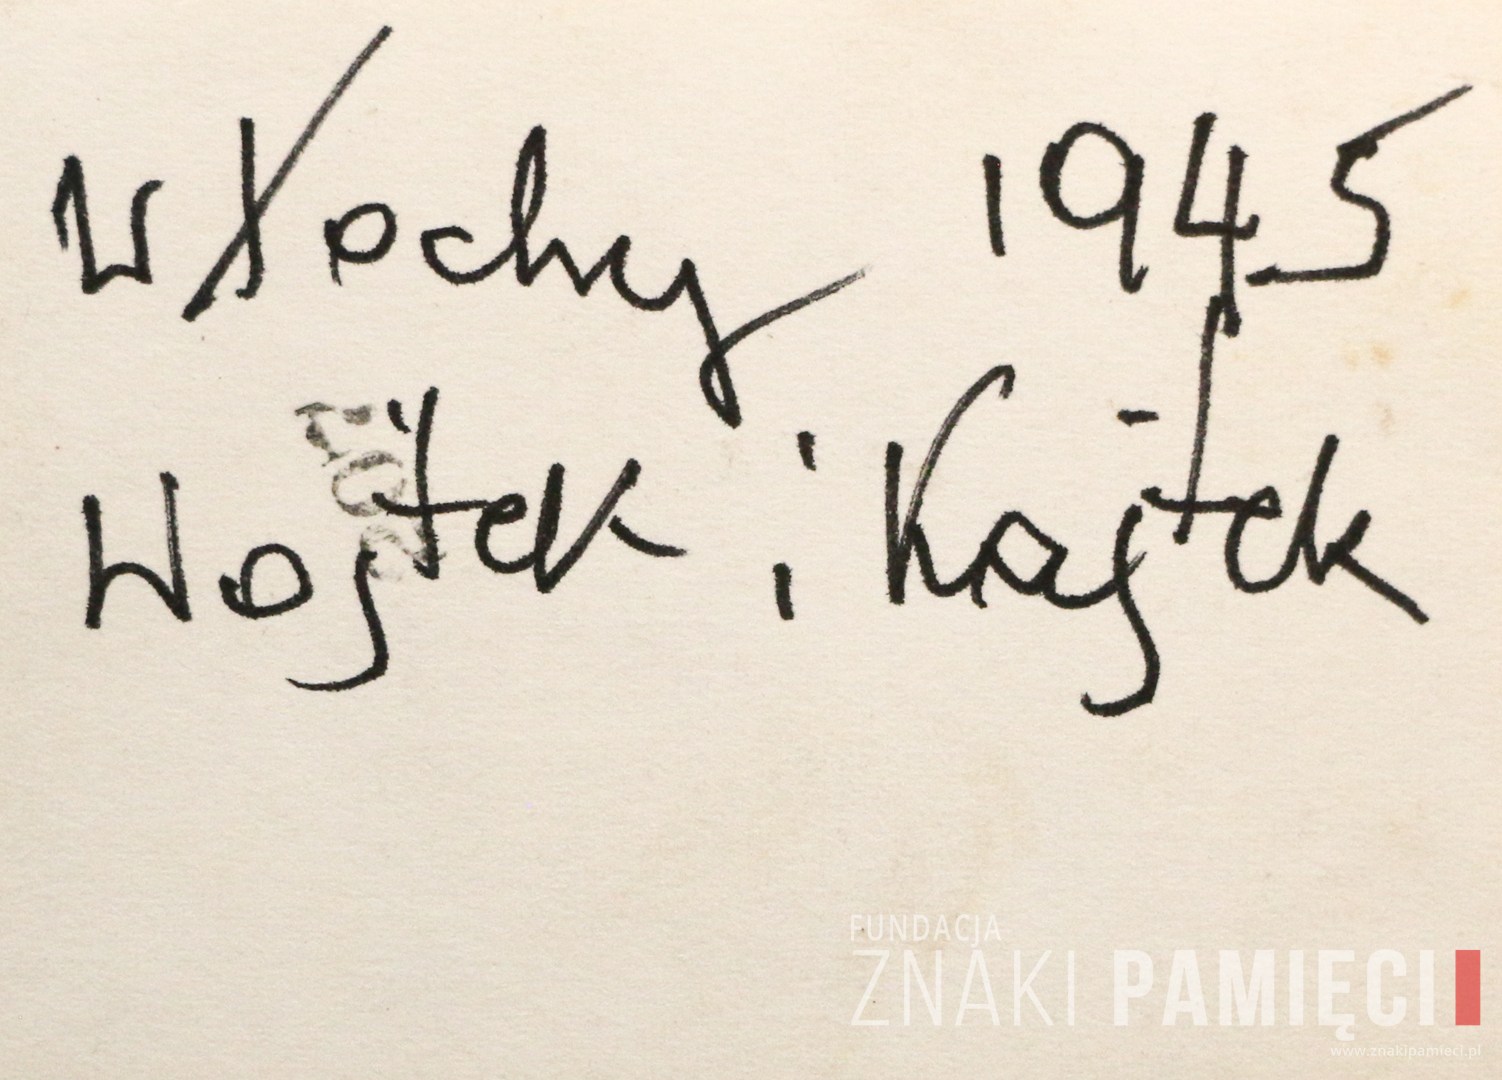 Włochy 1945
Wojtek i Kajtek
FUNDACJA
ZNAKI PAMIĘCI
www.znakipamieci.pl